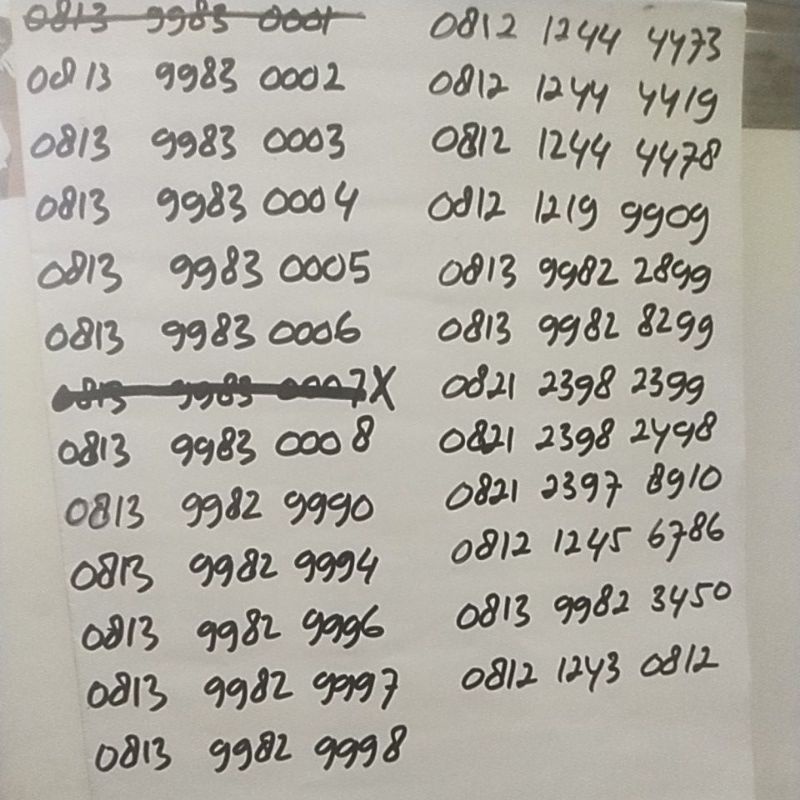 0813 9983 0001
0813 9983 0002
0813 9983 0003
0813 9983 0004
0813 9983 0005
0813 9983 0006
0813 9983 0007 X
0813 9983 0008
0813 9982 9990
0813 9982 9994
0813 9982 9996
0813 9982 9997
0813 9982 9998
0812 1244 4473
0812 1244 4419
0812 1244 4478
0812 1219 9909
0813 9982 2899
0813 9982 8299
0821 2398 2399
0821 2398 2498
0821 2397 8910
0812 1245 6786
0813 9982 3450
0812 1243 0812